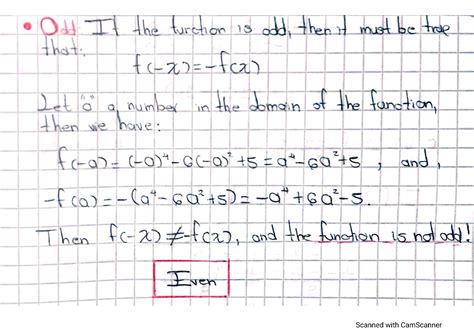 • Odd If the function is odd, then it must be true
that:
f(-x)=-f(x)
Let "a" a number in the domain of the function,
then we have:
f(-a)=(-a)⁴-6(-a)²+5=a⁴-6a²+5, and,
-f(a)=-(a⁴-6a²+5)=-a⁴+6a²-5.
Then f(-x)≠-f(x), and the function is not odd!
Even
Scanned with CamScanner